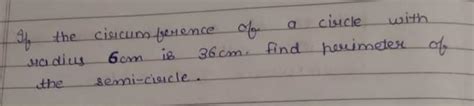 If the circumference of a circle with
radius 6cm is 36cm. find perimeter of
the semi-circle.